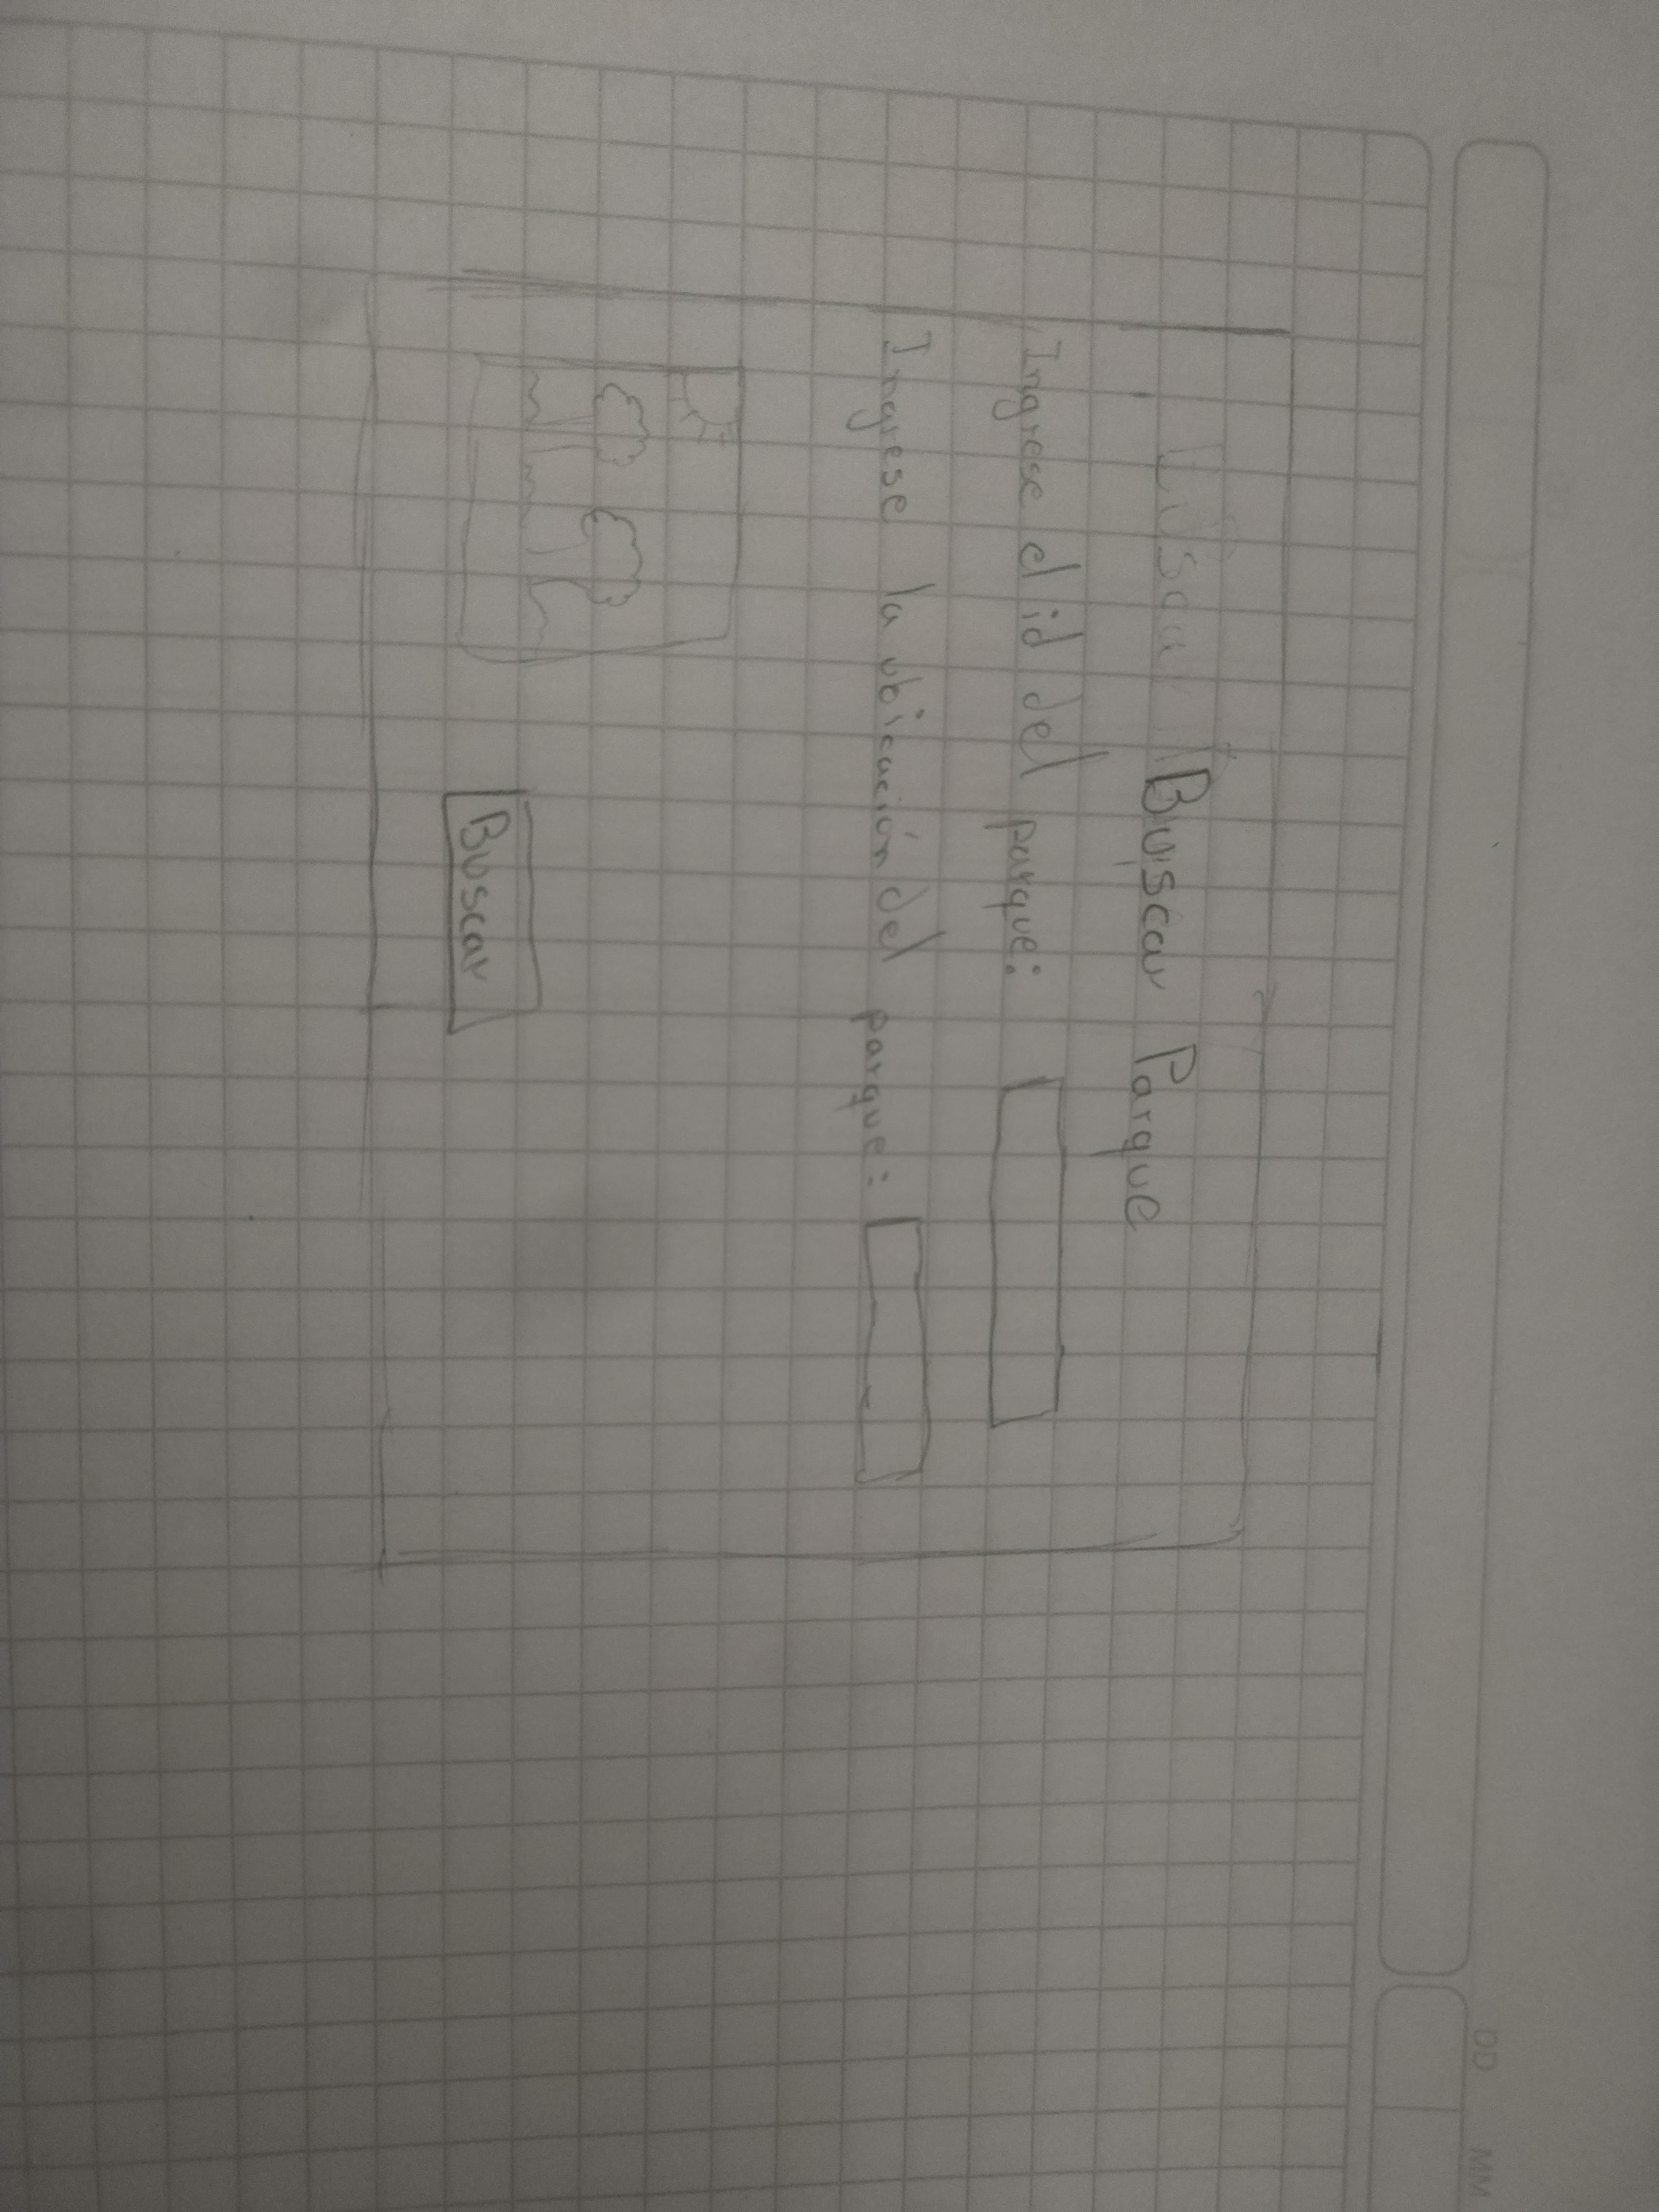 DD MM
Busca Buscar Parque
Ingrese el id del parque:
Ingrese la ubicación del parque:
Buscar